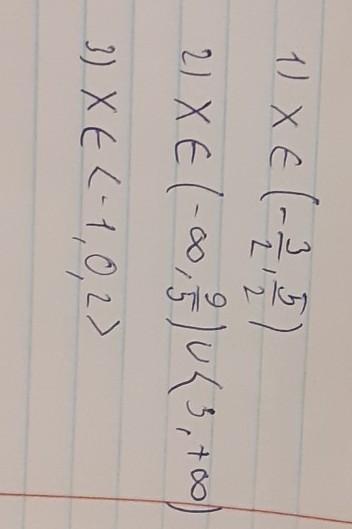 1) X ∈ (-3/2, 5/2)
2) X ∈ (-∞, 9/5) ∪ <3, +∞)
3) X ∈ <-1, 0, 2>